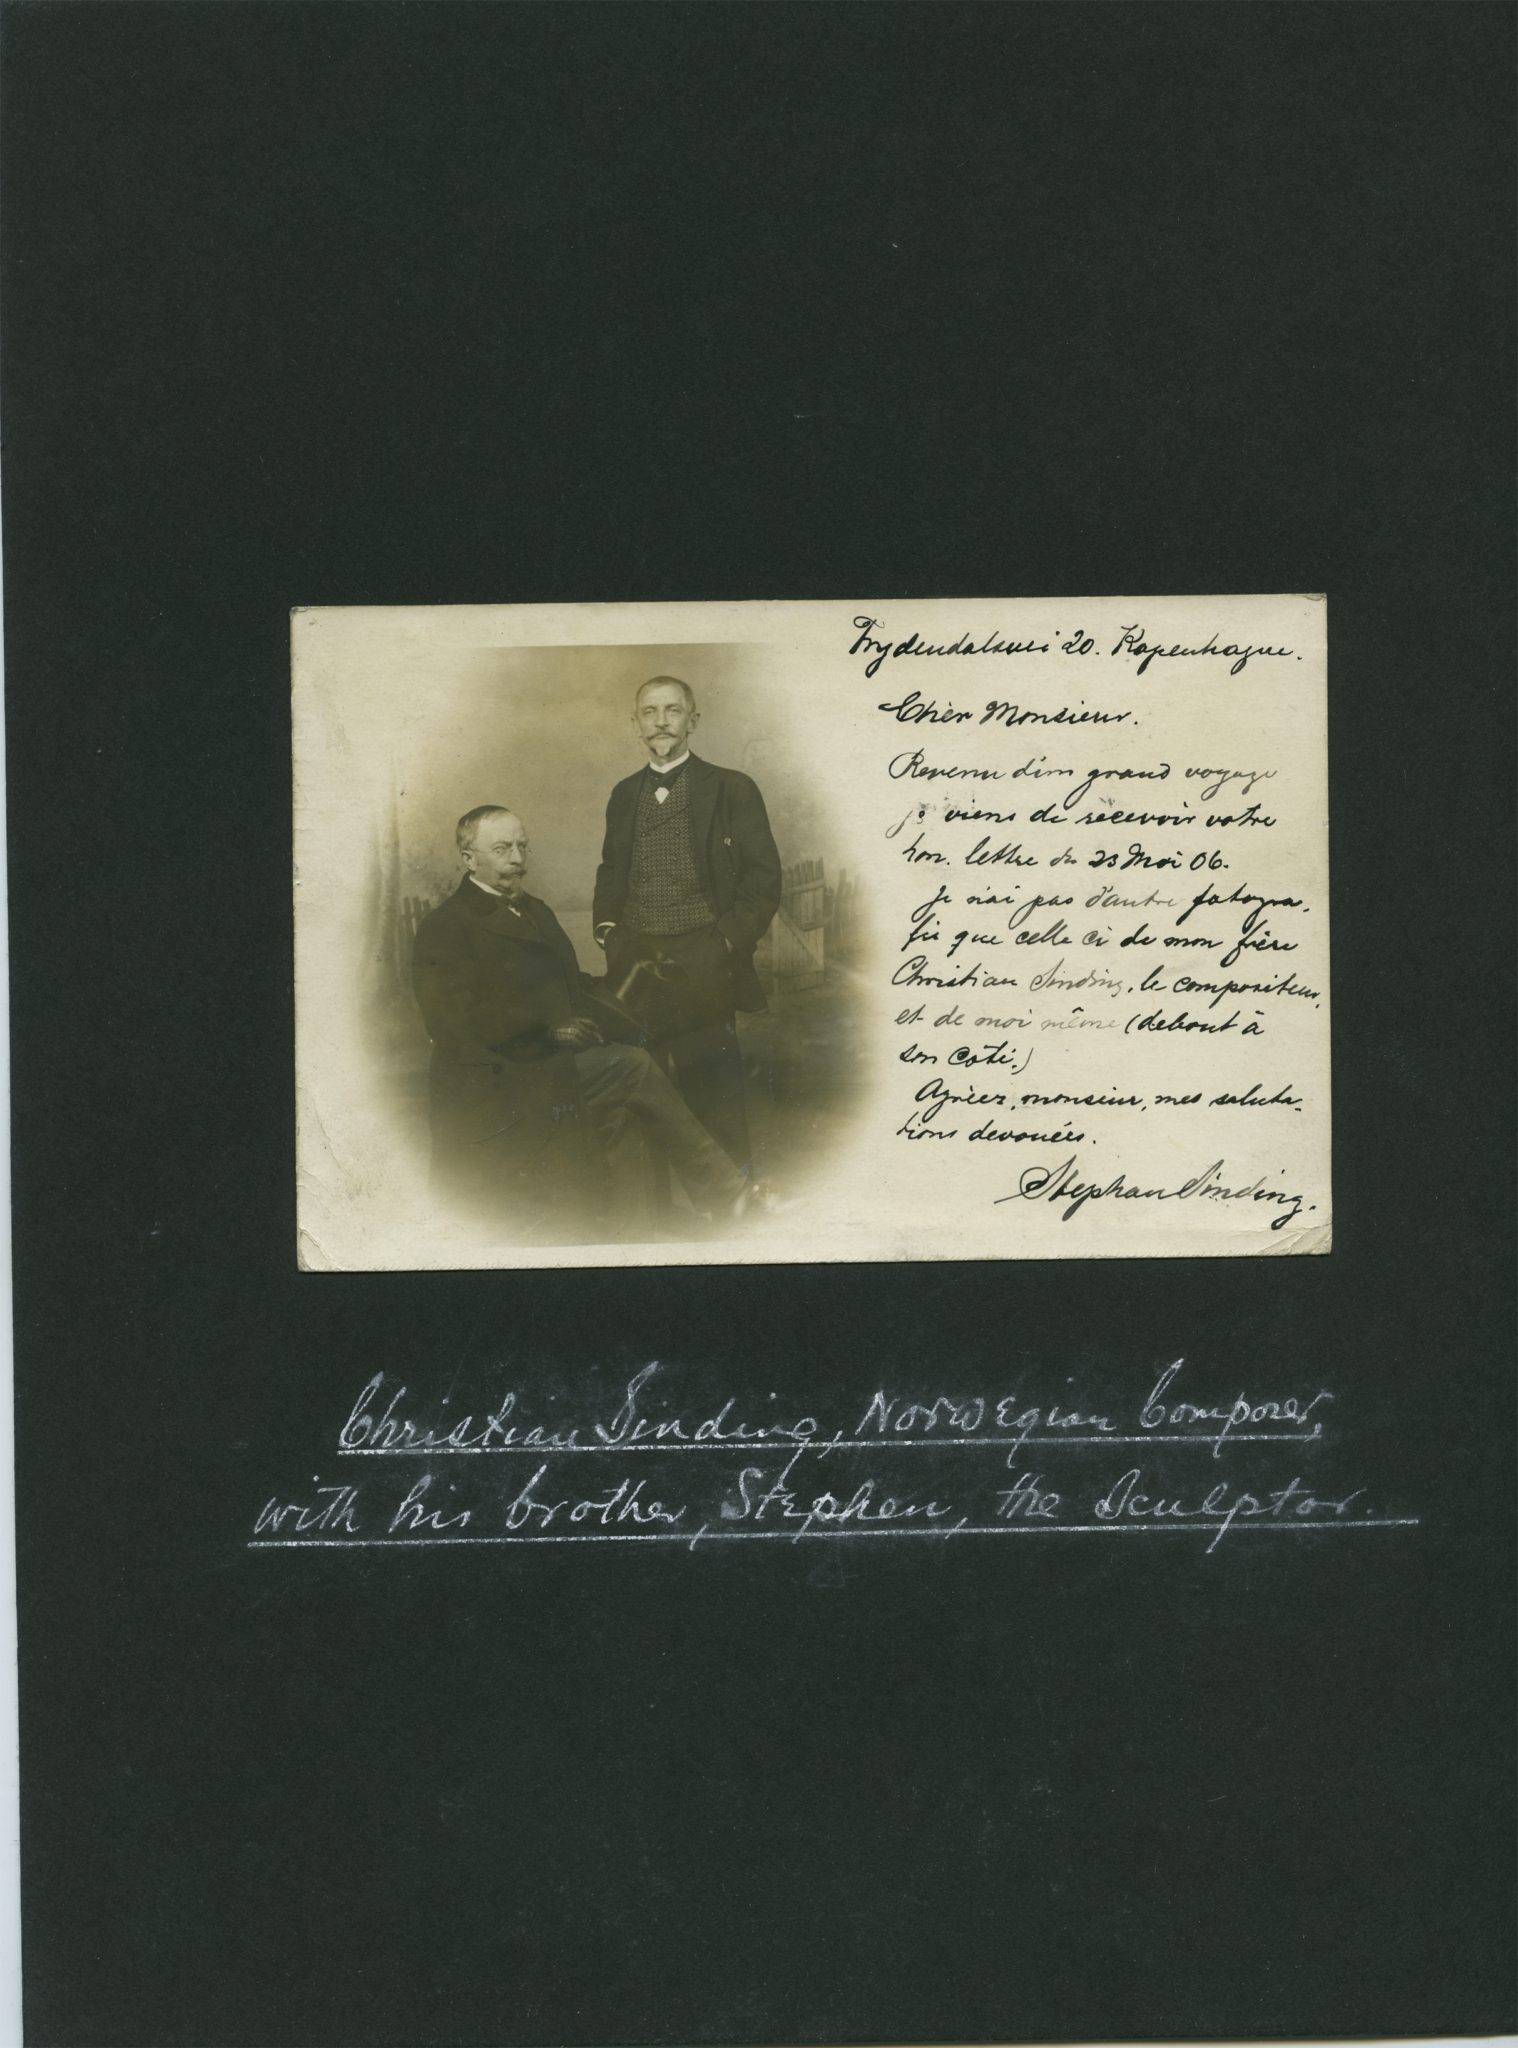 Frydendalsvei 20. Kopenhague.
Chèr Monsieur.
Revenu d'un grand voyage
je viens de recevoir votre
hon. lettre du 23 Mai 06.
Je n'ai pas d'autre fotogra-
fie que celle ci de mon frère
Christian Sinding, le compositeur,
et de moi même (debout à
son coté.)
Agréez, monsieur, mes saluta-
tions devouées.
Stephan Sinding.
Christian Sinding, Norwegian Composer,
with his brother, Stephen, the Sculptor.